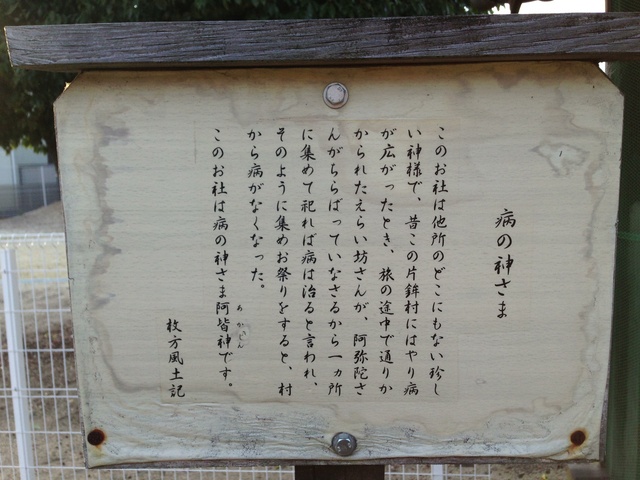 病の神さま
このお社は他所のどこにもない珍し
い神様で、昔この片鉾村にはやり病
が広がったとき、旅の途中で通りか
かられたえらい坊さんが、阿弥陀さ
んがちらばっていなさるから一ヵ所
に集めて祀れば病は治ると言われ、
そのように集めお祭りをすると、村
から病がなくなった。
このお社は病の神さま阿皆神です。
枚方風土記